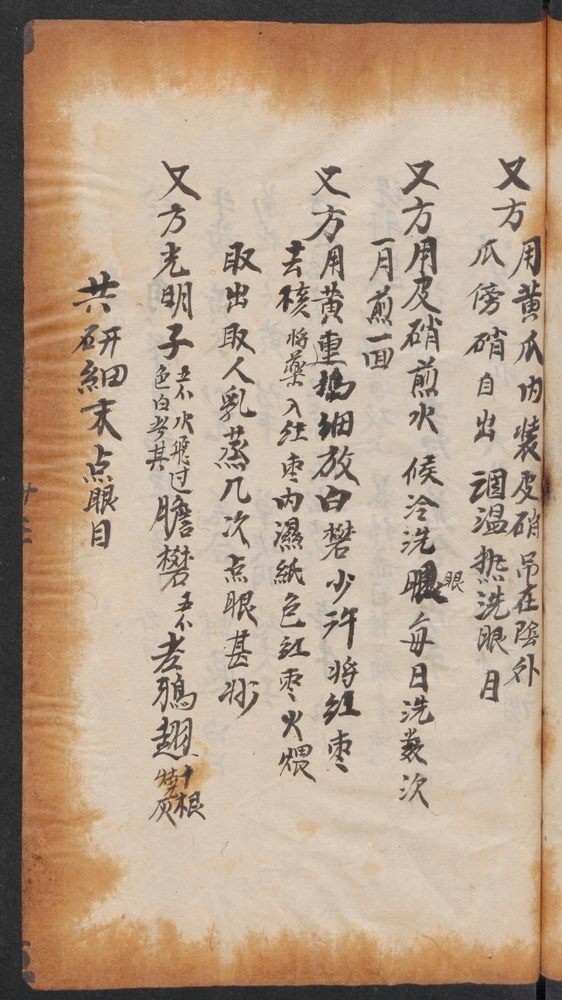 又方用黃瓜内装皮硝吊在陰外
瓜傍硝自出 調温热洗眼目
又方用皮硝煎水 候冷洗眼每日洗数次
一月煎一回
又方用黄連搗细放白礬少许将红枣
去核将藥入红枣内濕紙包红枣火煨
取出取人乳蒸几次点眼甚妙
又方光明子 水飛过 胆礬 老鴉翅 十根 燒灰
共研細末 点眼目